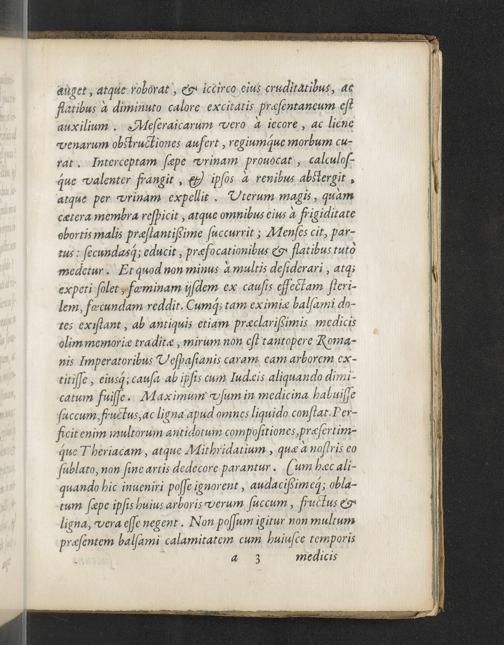 auget, atque roborat, & iccirco eius cruditatibus, ac
flatibus à diminuto calore excitatis præsentaneum est
auxilium. Meseraicarum vero à iecore, ac liene
venarum obstructiones aufert, regiumq́ue morbum cu-
rat. Interceptam sæpe vrinam prouocat, calculos-
q́ue valenter frangit, & ipsos à renibus abstergit,
atque per vrinam expellit. Vterum magis, quàm
cætera membra respicit, atque omnibus eius à frigiditate
obortis malis præstantißime succurrit; Menses cit, par-
tus: secundasq́; educit, præfocationibus & flatibus tutò
medetur. Et quod non minus à multis desiderari, atq;
expeti solet, fœminam ijsdem ex causis effectam steri-
lem, fœcundam reddit. Cumq́; tam eximiæ balsami do-
tes existant, ab antiquis etiam præclarißimis medicis
olim memoriæ traditæ, mirum non est tantopere Roma-
nis Imperatoribus Vespasianis caram eam arborem ex-
titisse, eiusq́; causa ab ipsis cum Iudæis aliquando dimi-
catum fuisse. Maximum vsum in medicina habuisse
succum, fructus, ac ligna apud omnes liquido constat. Per-
ficit enim multorum antidotum compositiones, præsertim-
q́ue Theriacam, atque Mithridatium, quæ à nostris eo
sublato, non sine artis dedecore parantur. Cum hæc ali-
quando hic inueniri posse ignorent, audacißimeq́; obla-
tum sæpe ipsis huius arboris verum succum, fructus &
ligna, vera esse negent. Non possum igitur non multum
præsentem balsami calamitatem cum huiusce temporis
a 3 medicis